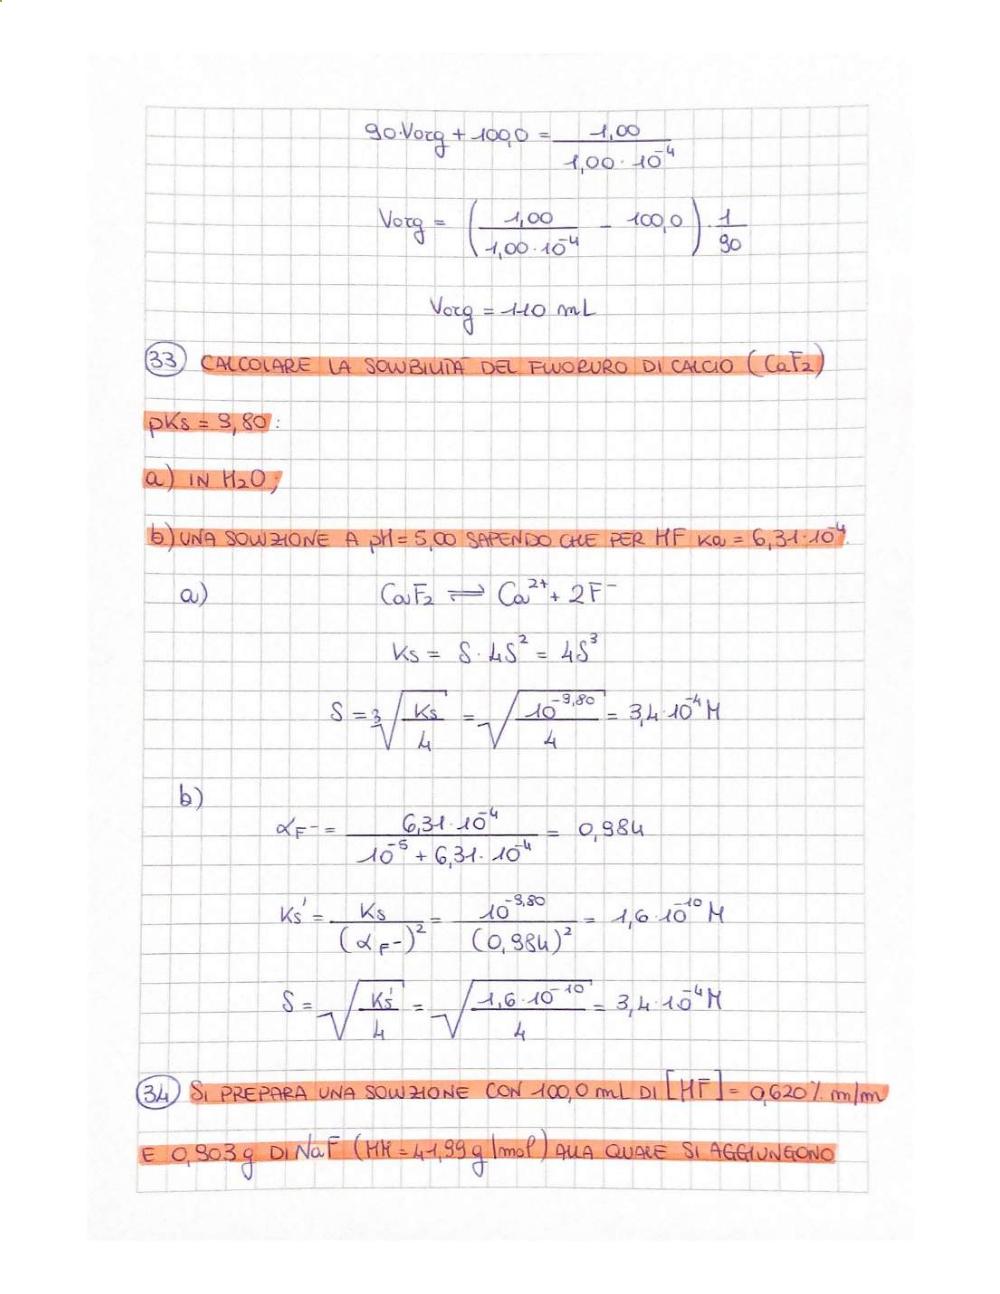 90·Vorg + 100,0 = 1,00 / 1,00·10⁻⁴
Vorg = (1,00 / 1,00·10⁻⁴ - 100,0)·1/90
Vorg = 110 mL
33 CALCOLARE LA SOLUBILITÀ DEL FLUORURO DI CALCIO (CaF₂)
pKs = 9,80:
a) IN H₂O;
b) UNA SOLUZIONE A pH = 5,00 SAPENDO CHE PER HF Ka = 6,31·10⁻⁴.
a) CaF₂ ⇌ Ca²⁺ + 2F⁻
Ks = S·4S² = 4S³
S = ³√(Ks/4) = √(10⁻⁹,⁸⁰/4) = 3,4·10⁻⁴ M
b)
αF⁻ = 6,31·10⁻⁴ / 10⁻⁵ + 6,31·10⁻⁴ = 0,984
Ks' = Ks / (αF⁻)² = 10⁻⁹,⁸⁰ / (0,984)² = 1,6·10⁻¹⁰ M
S = √(Ks'/4) = √(1,6·10⁻¹⁰/4) = 3,4·10⁻⁴ M
34 SI PREPARA UNA SOLUZIONE CON 100,0 mL DI [HF] = 0,620% m/m
E 0,903g DI NaF (MM = 41,99 g/mol) ALLA QUALE SI AGGIUNGONO